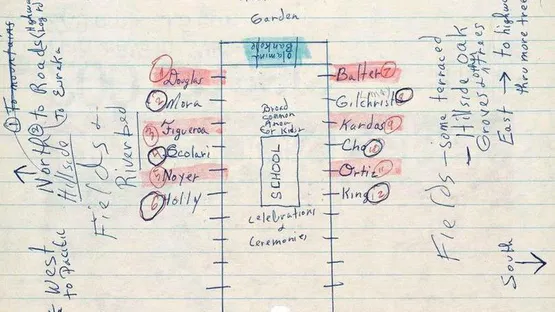 Garden
Olamina
Bankole
1 Douglas
2 Mora
3 Figueroa
4 Scolari
5 Noyer
6 Holly
Balter 7
Gilchrist 8
Kardos 9
Cho
Ortiz 11
King 12
Broad
common
Area
for Kids
SCHOOL
celebrations
&
Ceremonies
1 To mountains
North 2 to Roads (Highway
Hillside To Eureka
Fields &
Riverbed
West
to Pacific
Fields - some terraced
- Hillside oak
Groves & other trees
East → to highway
thru more trees
South